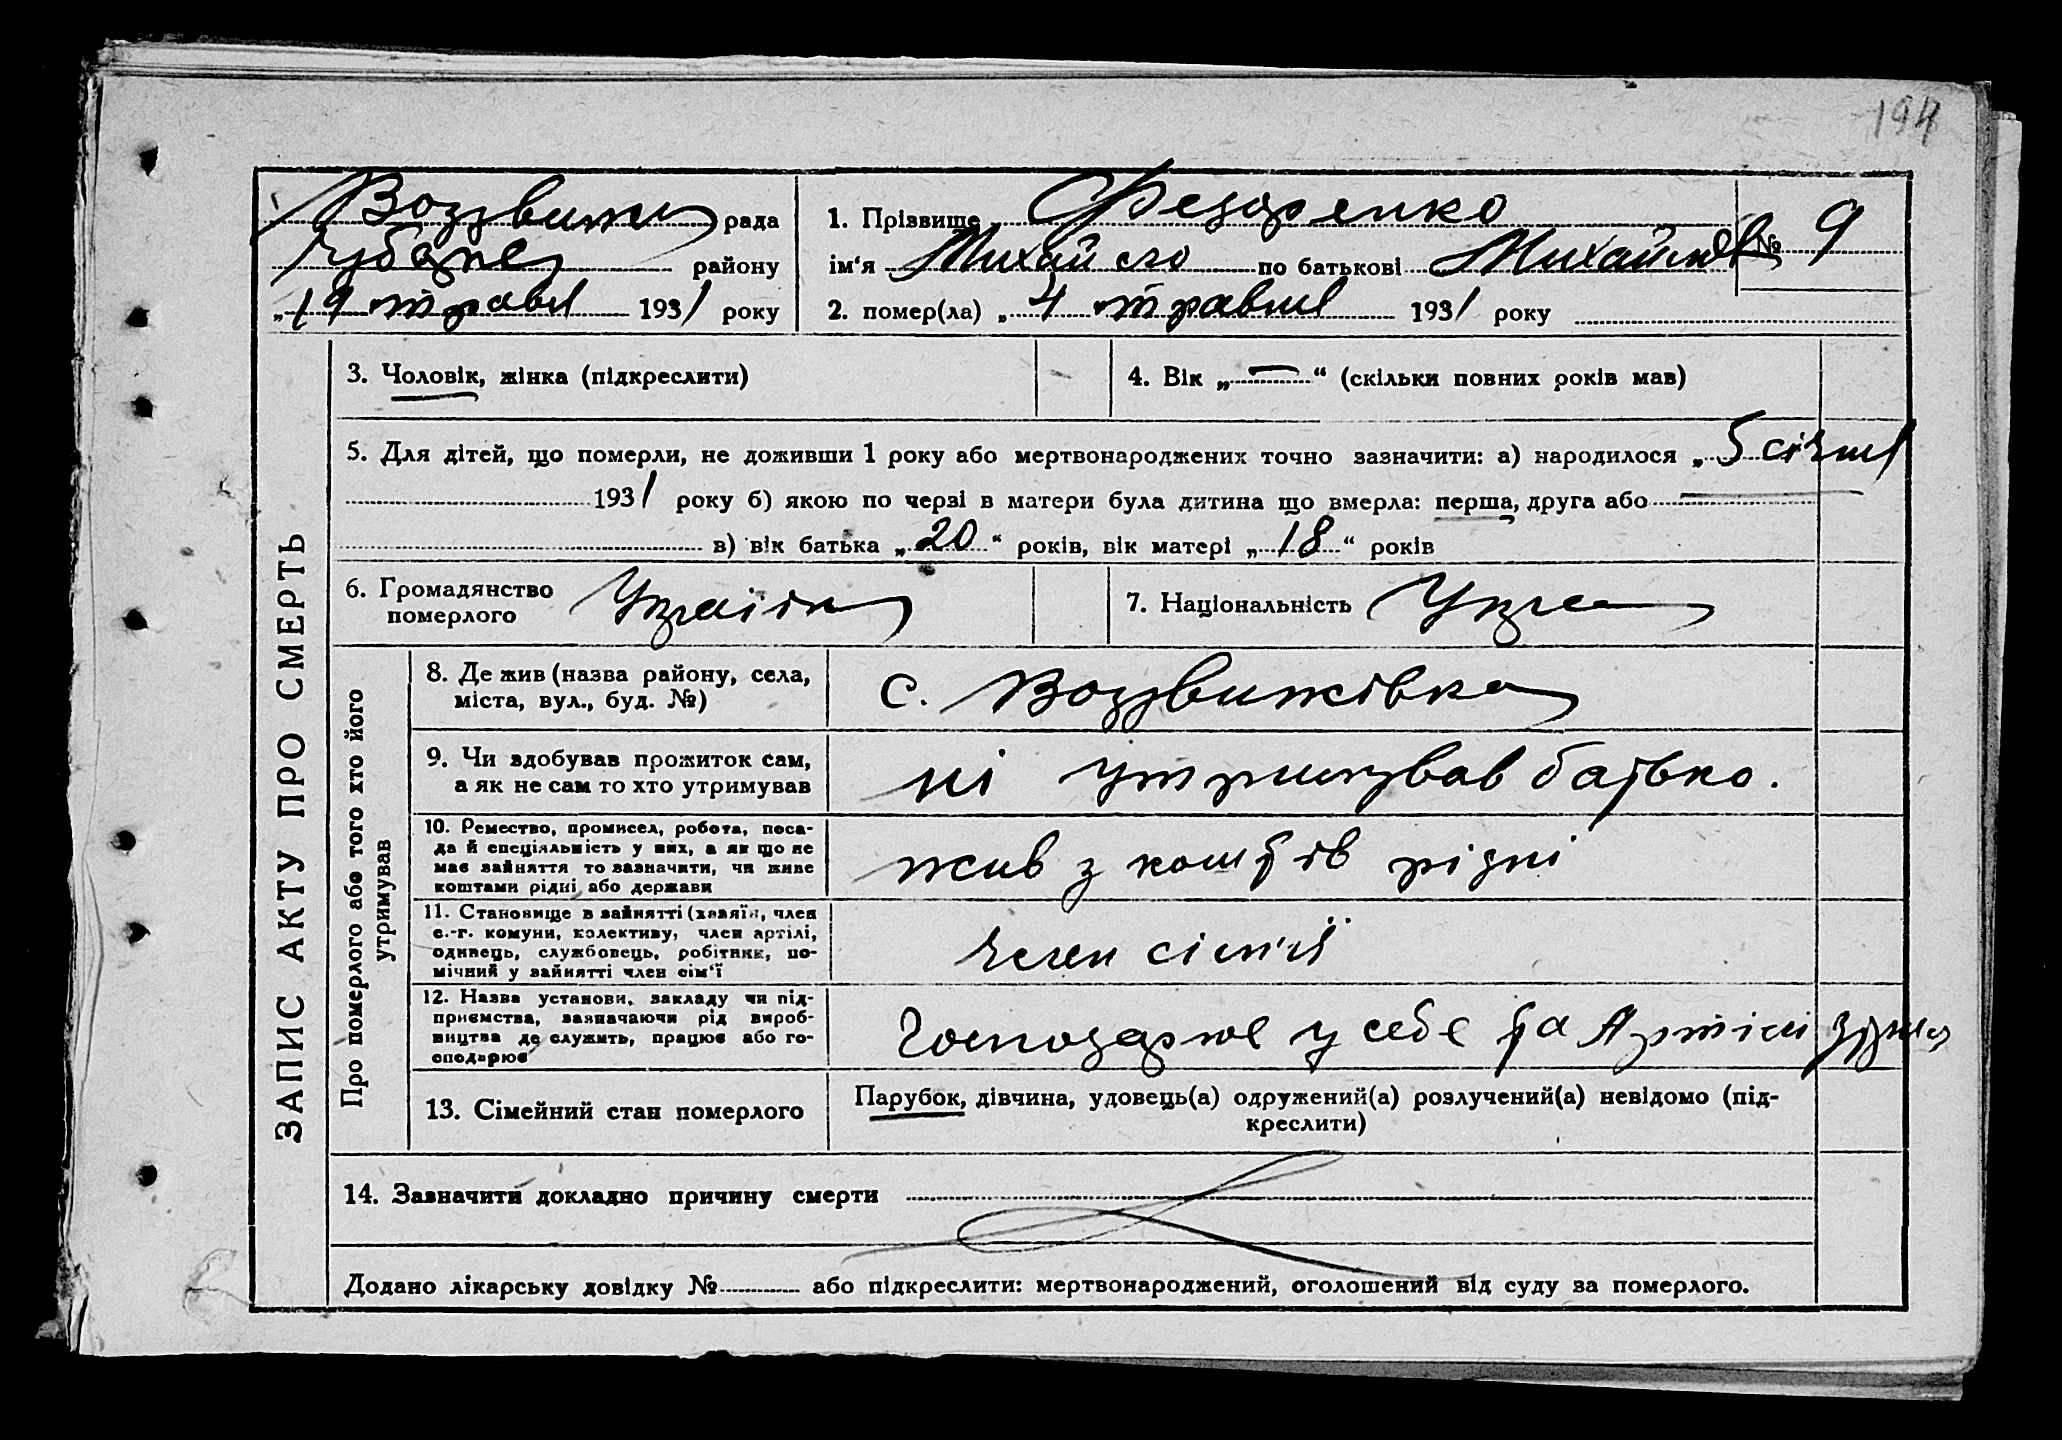 194
Воздвиж рада
Чубарев району
„19 травня 1931 року
1. Прізвище Федоренко
ім'я Михайло по батькові Михайлов
№ 9
2. помер(ла) „4 травня 1931 року
ЗАПИС АКТУ ПРО СМЕРТЬ
3. Чоловік, жінка (підкреслити)
4. Вік „—“ (скільки повних років мав)
5. Для дітей, що померли, не доживши 1 року або мертвонароджених точно зазначити: а) народилося „5 січня
1931 року б) якою по черзі в матери була дитина що вмерла: перша, друга або
в) вік батька „20“ років, вік матері „18“ років
6. Громадянство
померлого
Україн
7. Національність Укра
Про померлого або того хто його
утримував
8. Де жив (назва району, села,
міста, вул., буд. №)
с. Воздвижівка
9. Чи здобував прожиток сам,
а як не сам то хто утримував
ні утримував батько.
10. Ремество, промисел, робота, поса-
да й спеціяльність у них, а як що не
має зайняття то зазначити, чи живе
коштами рідні або держави
жив з коштів рідні
11. Становище в зайнятті (хазяїн, член
с.-г. комуни, колективу, член артілі,
одинець, службовець, робітник, по-
мічний у зайнятті член сім'ї
член сім'ї
12. Назва установи, закладу чи під-
приємства, зазначаючи рід вироб-
ництва де служить, працює або го-
сподарює
Господарює у себе та Артілі
13. Сімейний стан померлого
Парубок, дівчина, удовець(а) одружений(а) розлучений(а) невідомо (під-
креслити)
14. Зазначити докладно причину смерти
Додано лікарську довідку № або підкреслити: мертвонароджений, оголошений від суду за померлого.